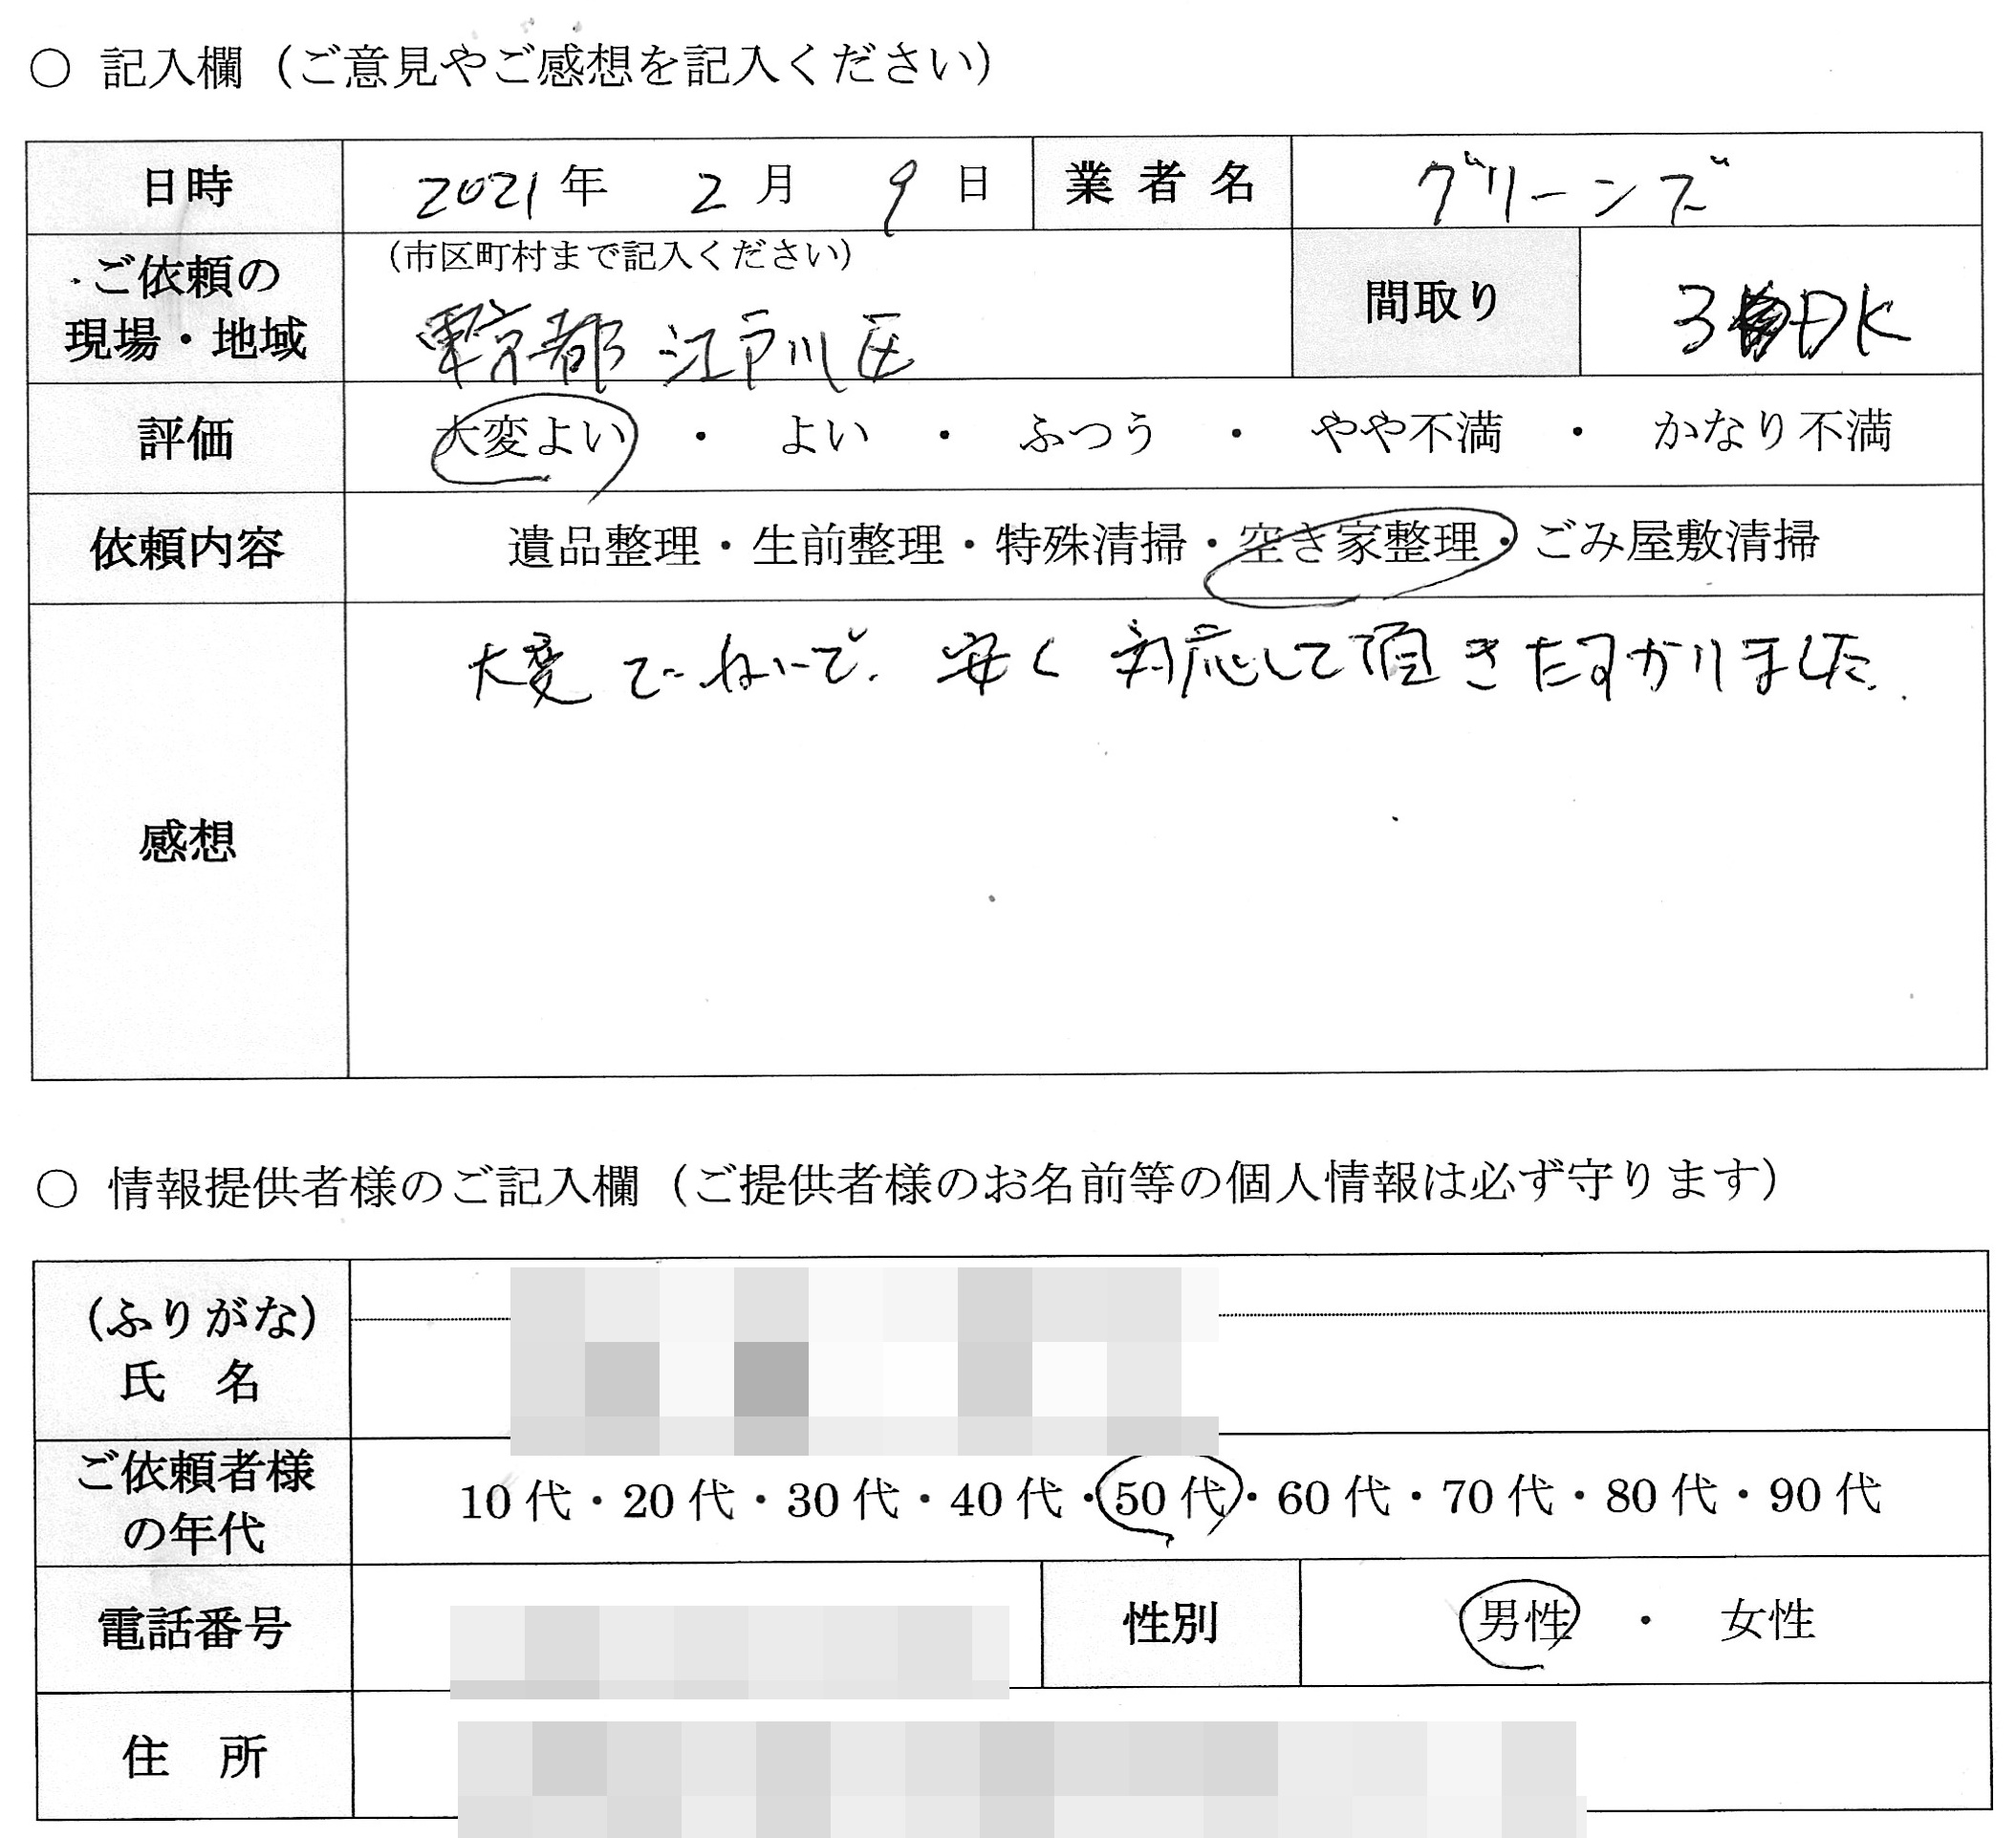 ○ 記入欄（ご意見やご感想を記入ください）
日時 2021年 2月 9日 業者名 グリーンズ
ご依頼の現場・地域 （市区町村まで記入ください） 間取り 3DK
東京都 江戸川区
評価 大変よい ・ よい ・ ふつう ・ やや不満 ・ かなり不満
依頼内容 遺品整理・生前整理・特殊清掃・空き家整理・ごみ屋敷清掃
感想 大変てーねいで、安く対応して頂きたすかりました。
○ 情報提供者様のご記入欄（ご提供者様のお名前等の個人情報は必ず守ります）
（ふりがな）
氏 名
ご依頼者様の年代 10代・20代・30代・40代・50代・60代・70代・80代・90代
電話番号 性別 男性 ・ 女性
住 所